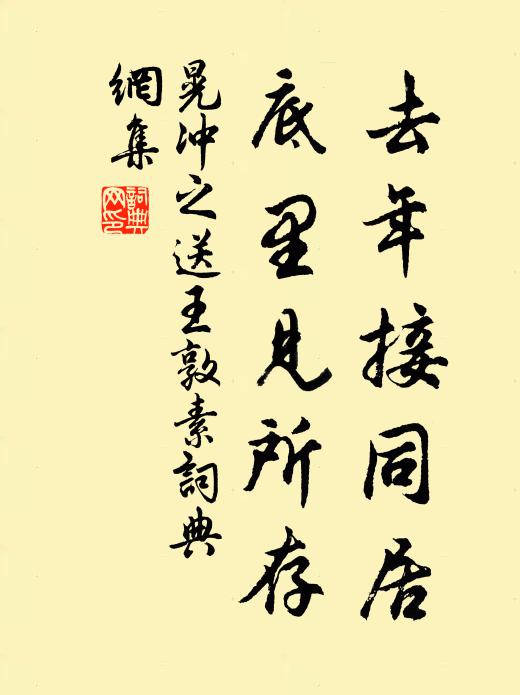 去年接同居
底里見所存
晃沖之送王敦素詞典
網集
詞典
网印